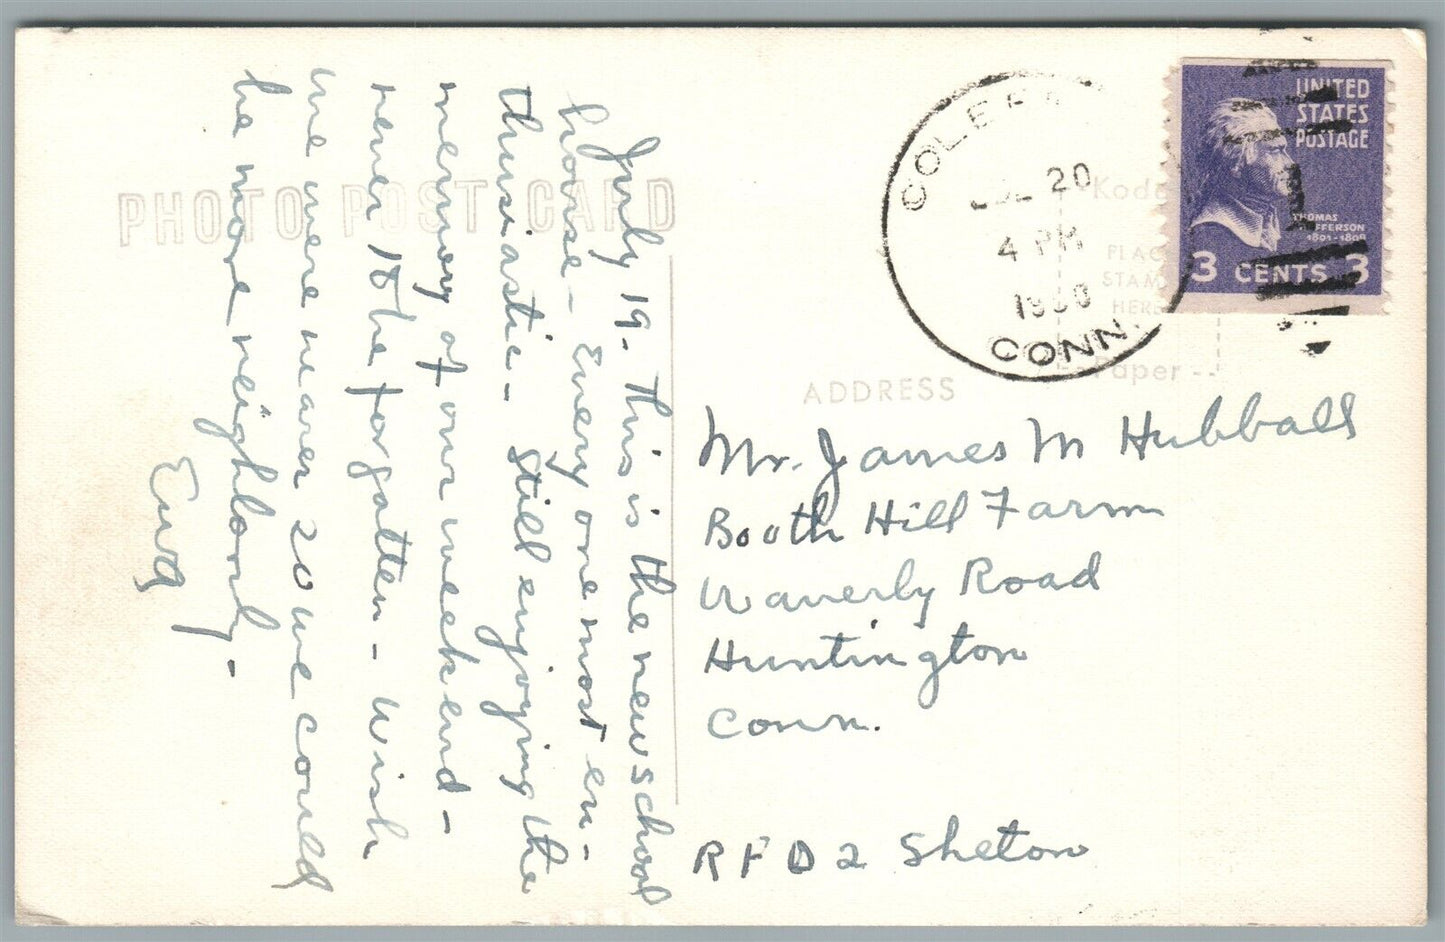 July 19 - This is the new school
house - Every one most en-
thusiastic - Still enjoying the
memory of our week end -
never to be forgotten - Wish
we were nearer so we could
be more neighborly -
Eva
PHOTO POST CARD
COLEBR
JUL 20
4 PM
CONN.
UNITED
STATES
POSTAGE
THOMAS
JEFFERSON
1801-1809
3 CENTS 3
PLACE
STAMP
HERE
Paper
ADDRESS
Mr. James M Hubball
Booth Hill Farm
Waverly Road
Huntington
Conn.
RFD 2 Shelton